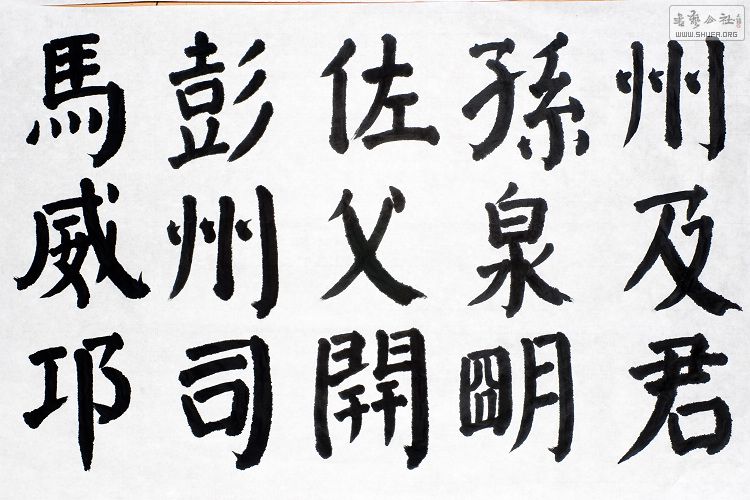 州及君
孫泉朙
佐父開
彭州司
馬威邛
書藝公社
WWW.SHUFA.ORG